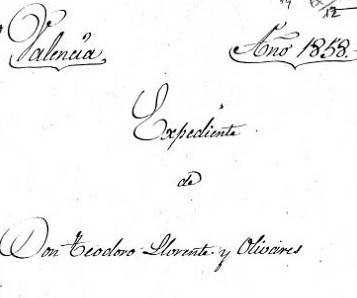 12
Valencia Año 1858.
Expediente
de
Don Teodoro Llorente y Olivares